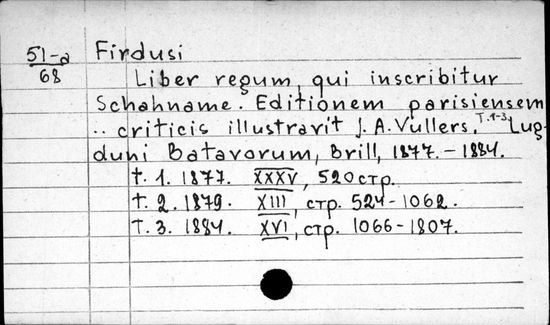 51-a
68
Firdusi
Liber regum, qui inscribitur
Schahname. Editionem parisiensem
.. criticis illustravit J. A. Vullers. T. 1-3. Lug-
duni Batavorum, Brill, 1877. – 1884.
т. 1. 1877. XXXV, 520 стр.
т. 2. 1879. XIII, стр. 524-1062.
т. 3. 1884. XVI, стр. 1066-1807.